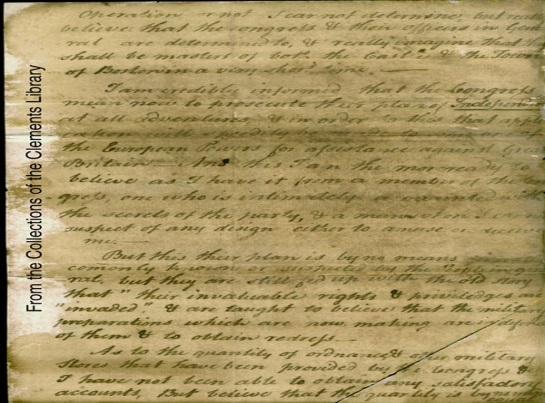 From the Collections of the Clements Library
Operation or not I can not determine, but really
believe that the Congress & their officers in Gene
ral are determined to, & really imagine that th
shall be masters of both the & the Town
of Boston in a very short time. —
I am credibly informed that the Congress
mean now to prosecute their plan of Independ
at all adventures, & in order to this that appl
will speedily be made to
the European Powers for assistance against Great
Britain — And this I am the more ready to
believe as I have it from a member of the
gress, one who is intimately acquainted with
the secrets of the party, & a man whom I can
suspect of any design either to amuse or deceive
me. —
But this their plan is by no means
commonly known or suspected by the People in gene
ral, but they are still fed up with the old story
that "their invaluable rights & priviledges are
"invaded" & are taught to believe that the military
preparations which are now making are
of them & to obtain redress —
As to the quantity of ordnance & other military
Stores that have been provided by the Congress &
I have not been able to obtain any satisfactory
accounts, But believe that the quantity is by no